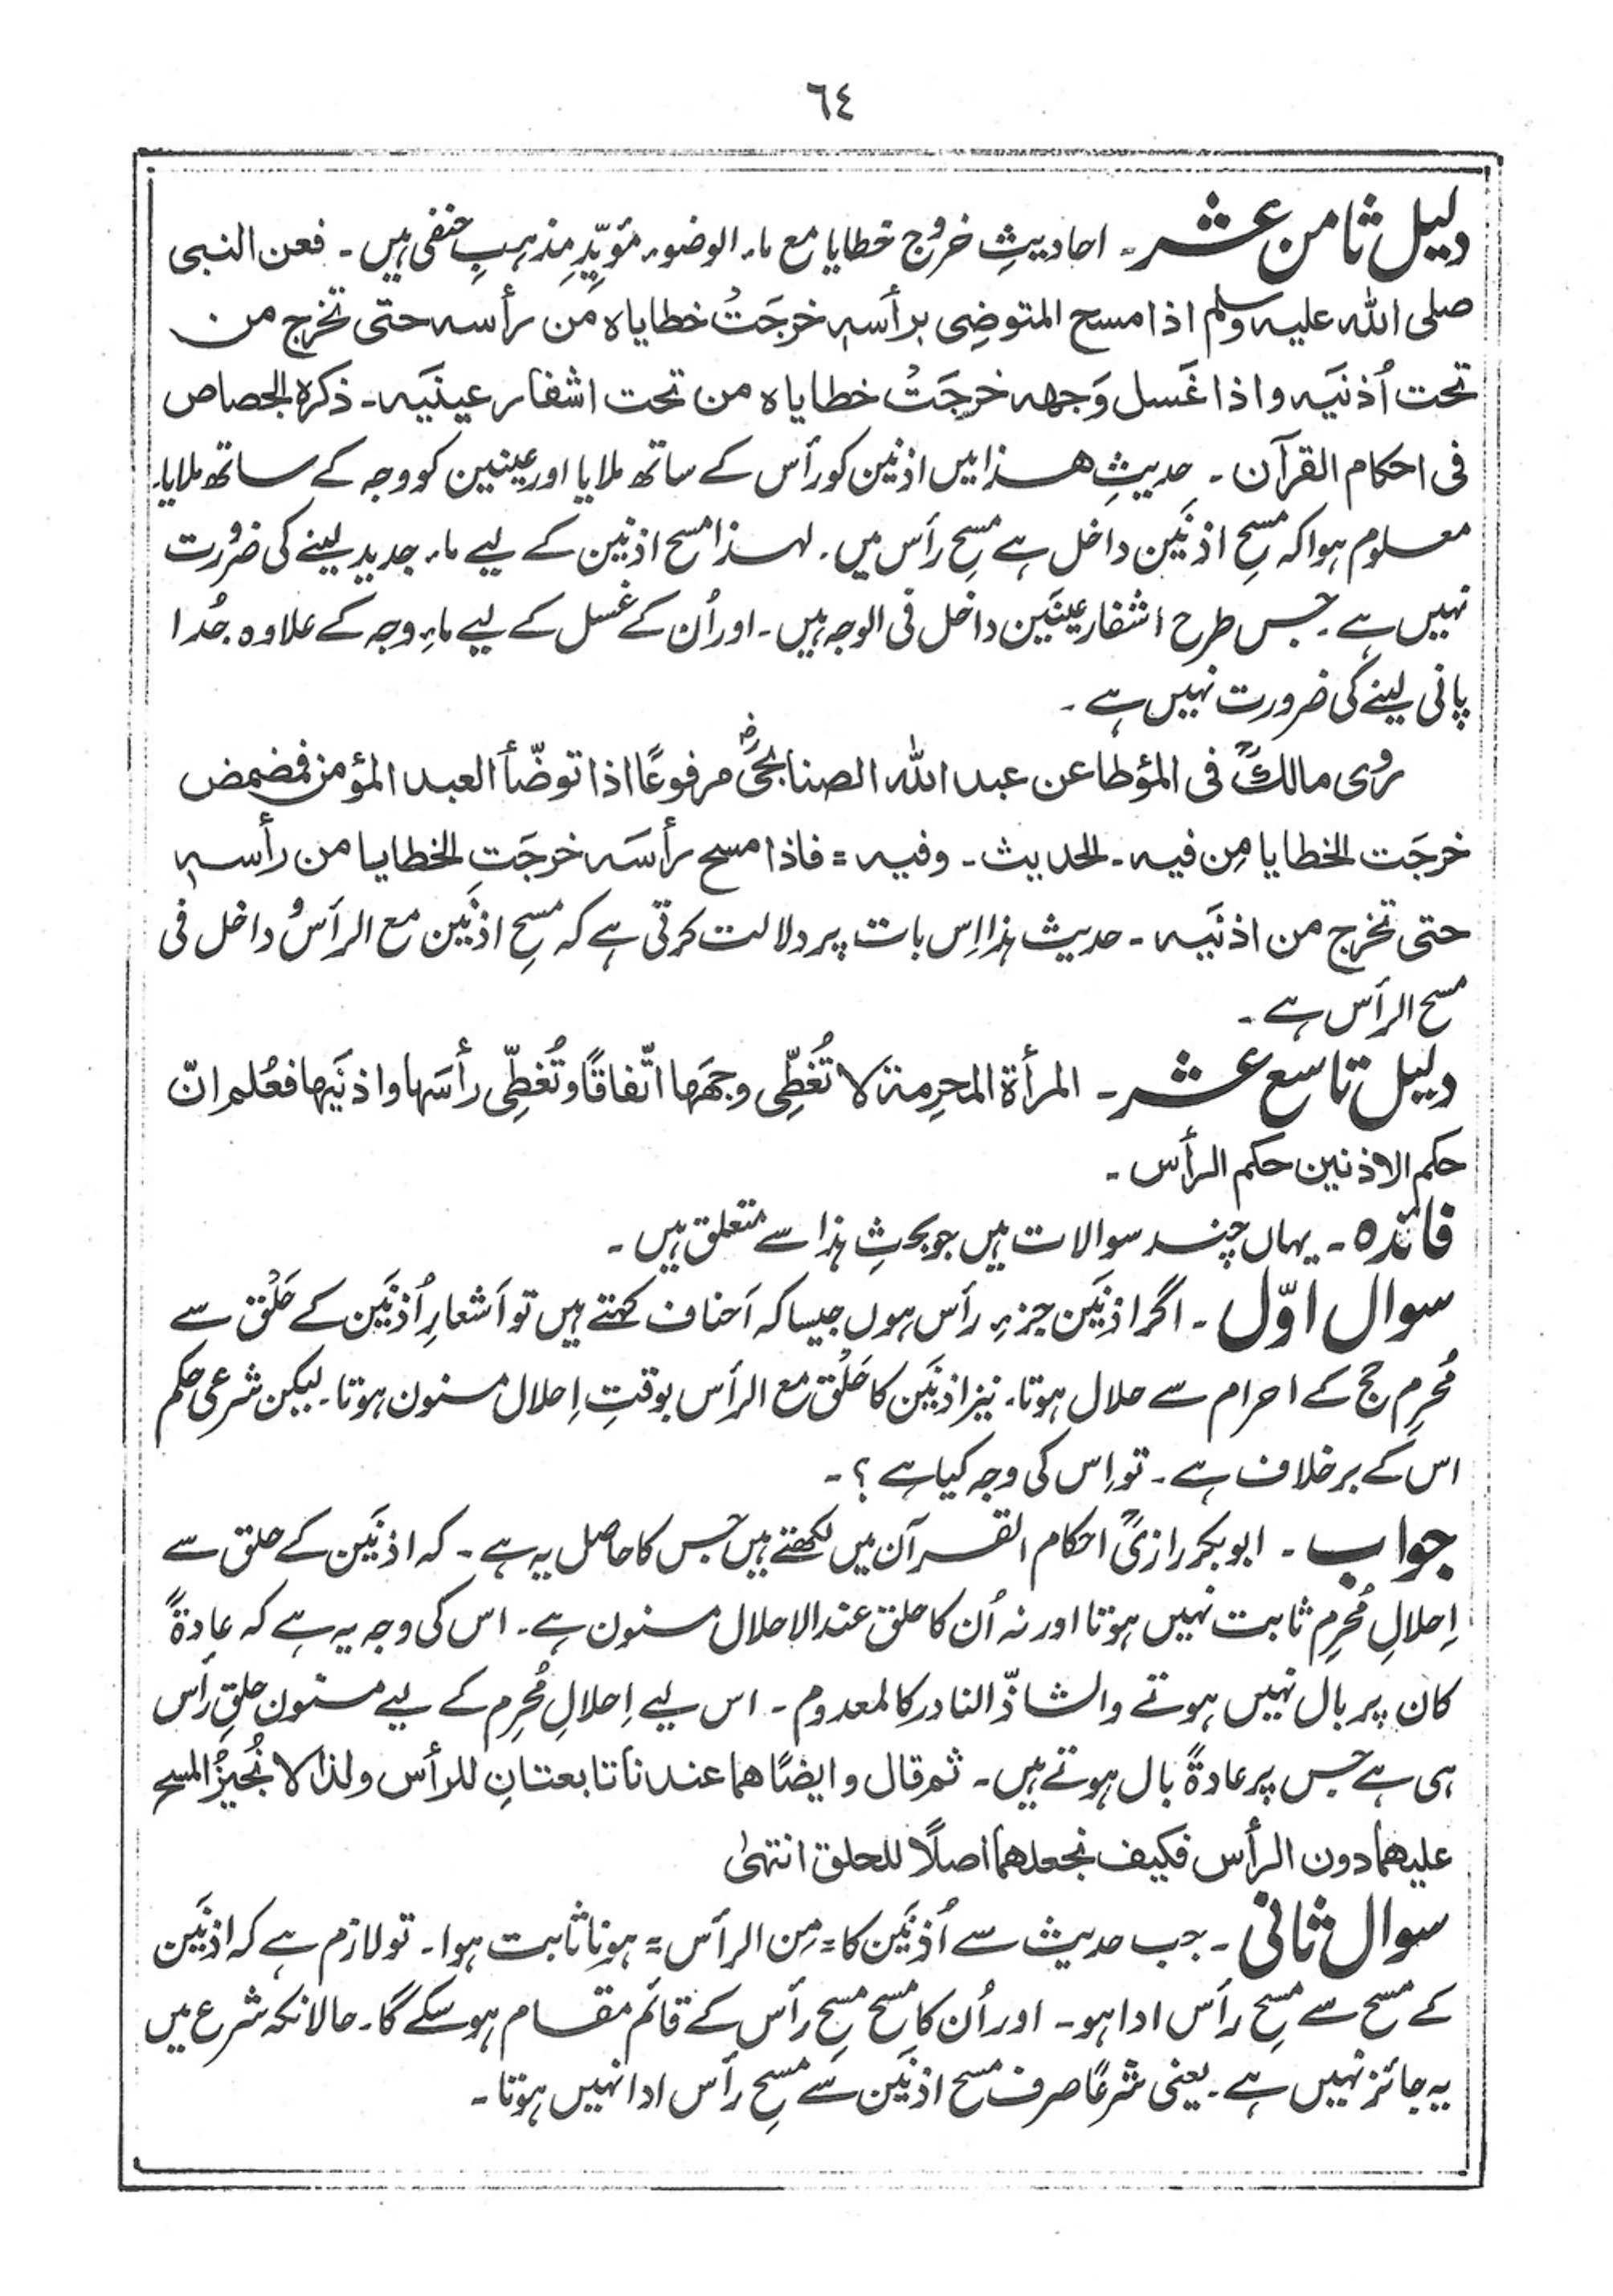 ٦٤
دلیل ثامن عشر ۔ احادیثِ خروج خطایا مع ماء الوضوء مؤیِّدِ مذہبِ حنفی ہیں ۔ فعن النبی
صلی اللہ علیہ وسلم اذا مسح المتوضِی برأسِہٖ خرجَتْ خطایاہ مَن رأسہ حتی تخرج من
تحت اُذنیَہ واذا غَسل وَجھہ خرجَتْ خطایاہ من تحت اشفار عینَیہ ۔ ذکرہ الجصاص
فی احکام القرآن ۔ حدیثِ ھذا میں اذنین کو رأس کے ساتھ ملایا اور عینین کو وجہ کے ساتھ ملایا۔
معلوم ہوا کہ مسحِ اذنَین داخل ہے مسحِ رأس میں ۔ لہذا مسح اذنین کے لیے ماء جدید لینے کی ضرورت
نہیں ہے ۔ جس طرح اشفارِ عینَین داخل فی الوجہ ہیں ۔ اور اُن کے غسل کے لیے ماءِ وجہ کے علاوہ جُدا
پانی لینے کی ضرورت نہیں ہے ۔
رویٰ مالکؒ فی المؤطا عن عبد اللہ الصنابحیؓ مرفوعًا اذا توضّأ العبد المؤمن فمضمض
خرجَت الخطایا مِن فیہ ۔ الحدیث ۔ وفیہ = فاذا مسح رأسَہ خرجَتِ الخطایا من رأسہٖ
حتی تخرج من اذنَیہ ۔ حدیث ہذا اِس بات پر دلالت کرتی ہے کہ مسحِ اذنَین مع الرأس و داخل فی
مسح الرأس ہے ۔
دلیل تاسع عشر ۔ المرأۃ المحرِمۃ لا تُغطِّی وجھَھا اتّفاقًا وتُغطِّی رأسَھا واذنَیھا فعُلم انّ
حکم الاذنین حکم الرأس ۔
فائدہ ۔ یہاں چند سوالات ہیں جو بحثِ ہذا سے متعلق ہیں ۔
سوال اوّل ۔ اگر اذنَین جزءِ رأس ہوں جیسا کہ اَحناف کہتے ہیں تو اَشعارِ اُذنَین کے حَلْق سے
مُحرِم حج کے احرام سے حلال ہوتا۔ نیز اذنَین کا حَلْق مع الرأس بوقتِ اِحلال مسنون ہوتا۔ لیکن شرعی حکم
اس کے برخلاف ہے ۔ تو اِس کی وجہ کیا ہے ؟ ۔
جواب ۔ ابوبکر رازیؒ احکام القرآن میں لکھتے ہیں جس کا حاصل یہ ہے ۔ کہ اذنَین کے حلق سے
اِحلالِ مُحرِم ثابت نہیں ہوتا اور نہ اُن کا حلق عند الاحلال مسنون ہے ۔ اس کی وجہ یہ ہے کہ عادۃً
کان پر بال نہیں ہوتے والشاذّ النادر کالمعدوم ۔ اس لیے اِحلالِ مُحرِم کے لیے مسنون حلقِ رأس
ہی ہے جس پر عادۃً بال ہوتے ہیں ۔ ثم قال وایضًا ھما عندنا تابعتانِ للرأس ولذا لا نُجیزُ المسح
علیھما دون الرأس فکیف نجعلھما اصلًا للحلق انتہیٰ
سوال ثانی ۔ جب حدیث سے اُذنَین کا = مِن الرأس = ہونا ثابت ہوا ۔ تو لازم ہے کہ اذنَین
کے مسح سے مسحِ رأس ادا ہو ۔ اور اُن کا مسح مسحِ رأس کے قائم مقام ہوسکے گا۔ حالانکہ شرع میں
یہ جائز نہیں ہے ۔ یعنی شرعًا صرف مسح اذنَین سے مسحِ رأس ادا نہیں ہوتا ۔